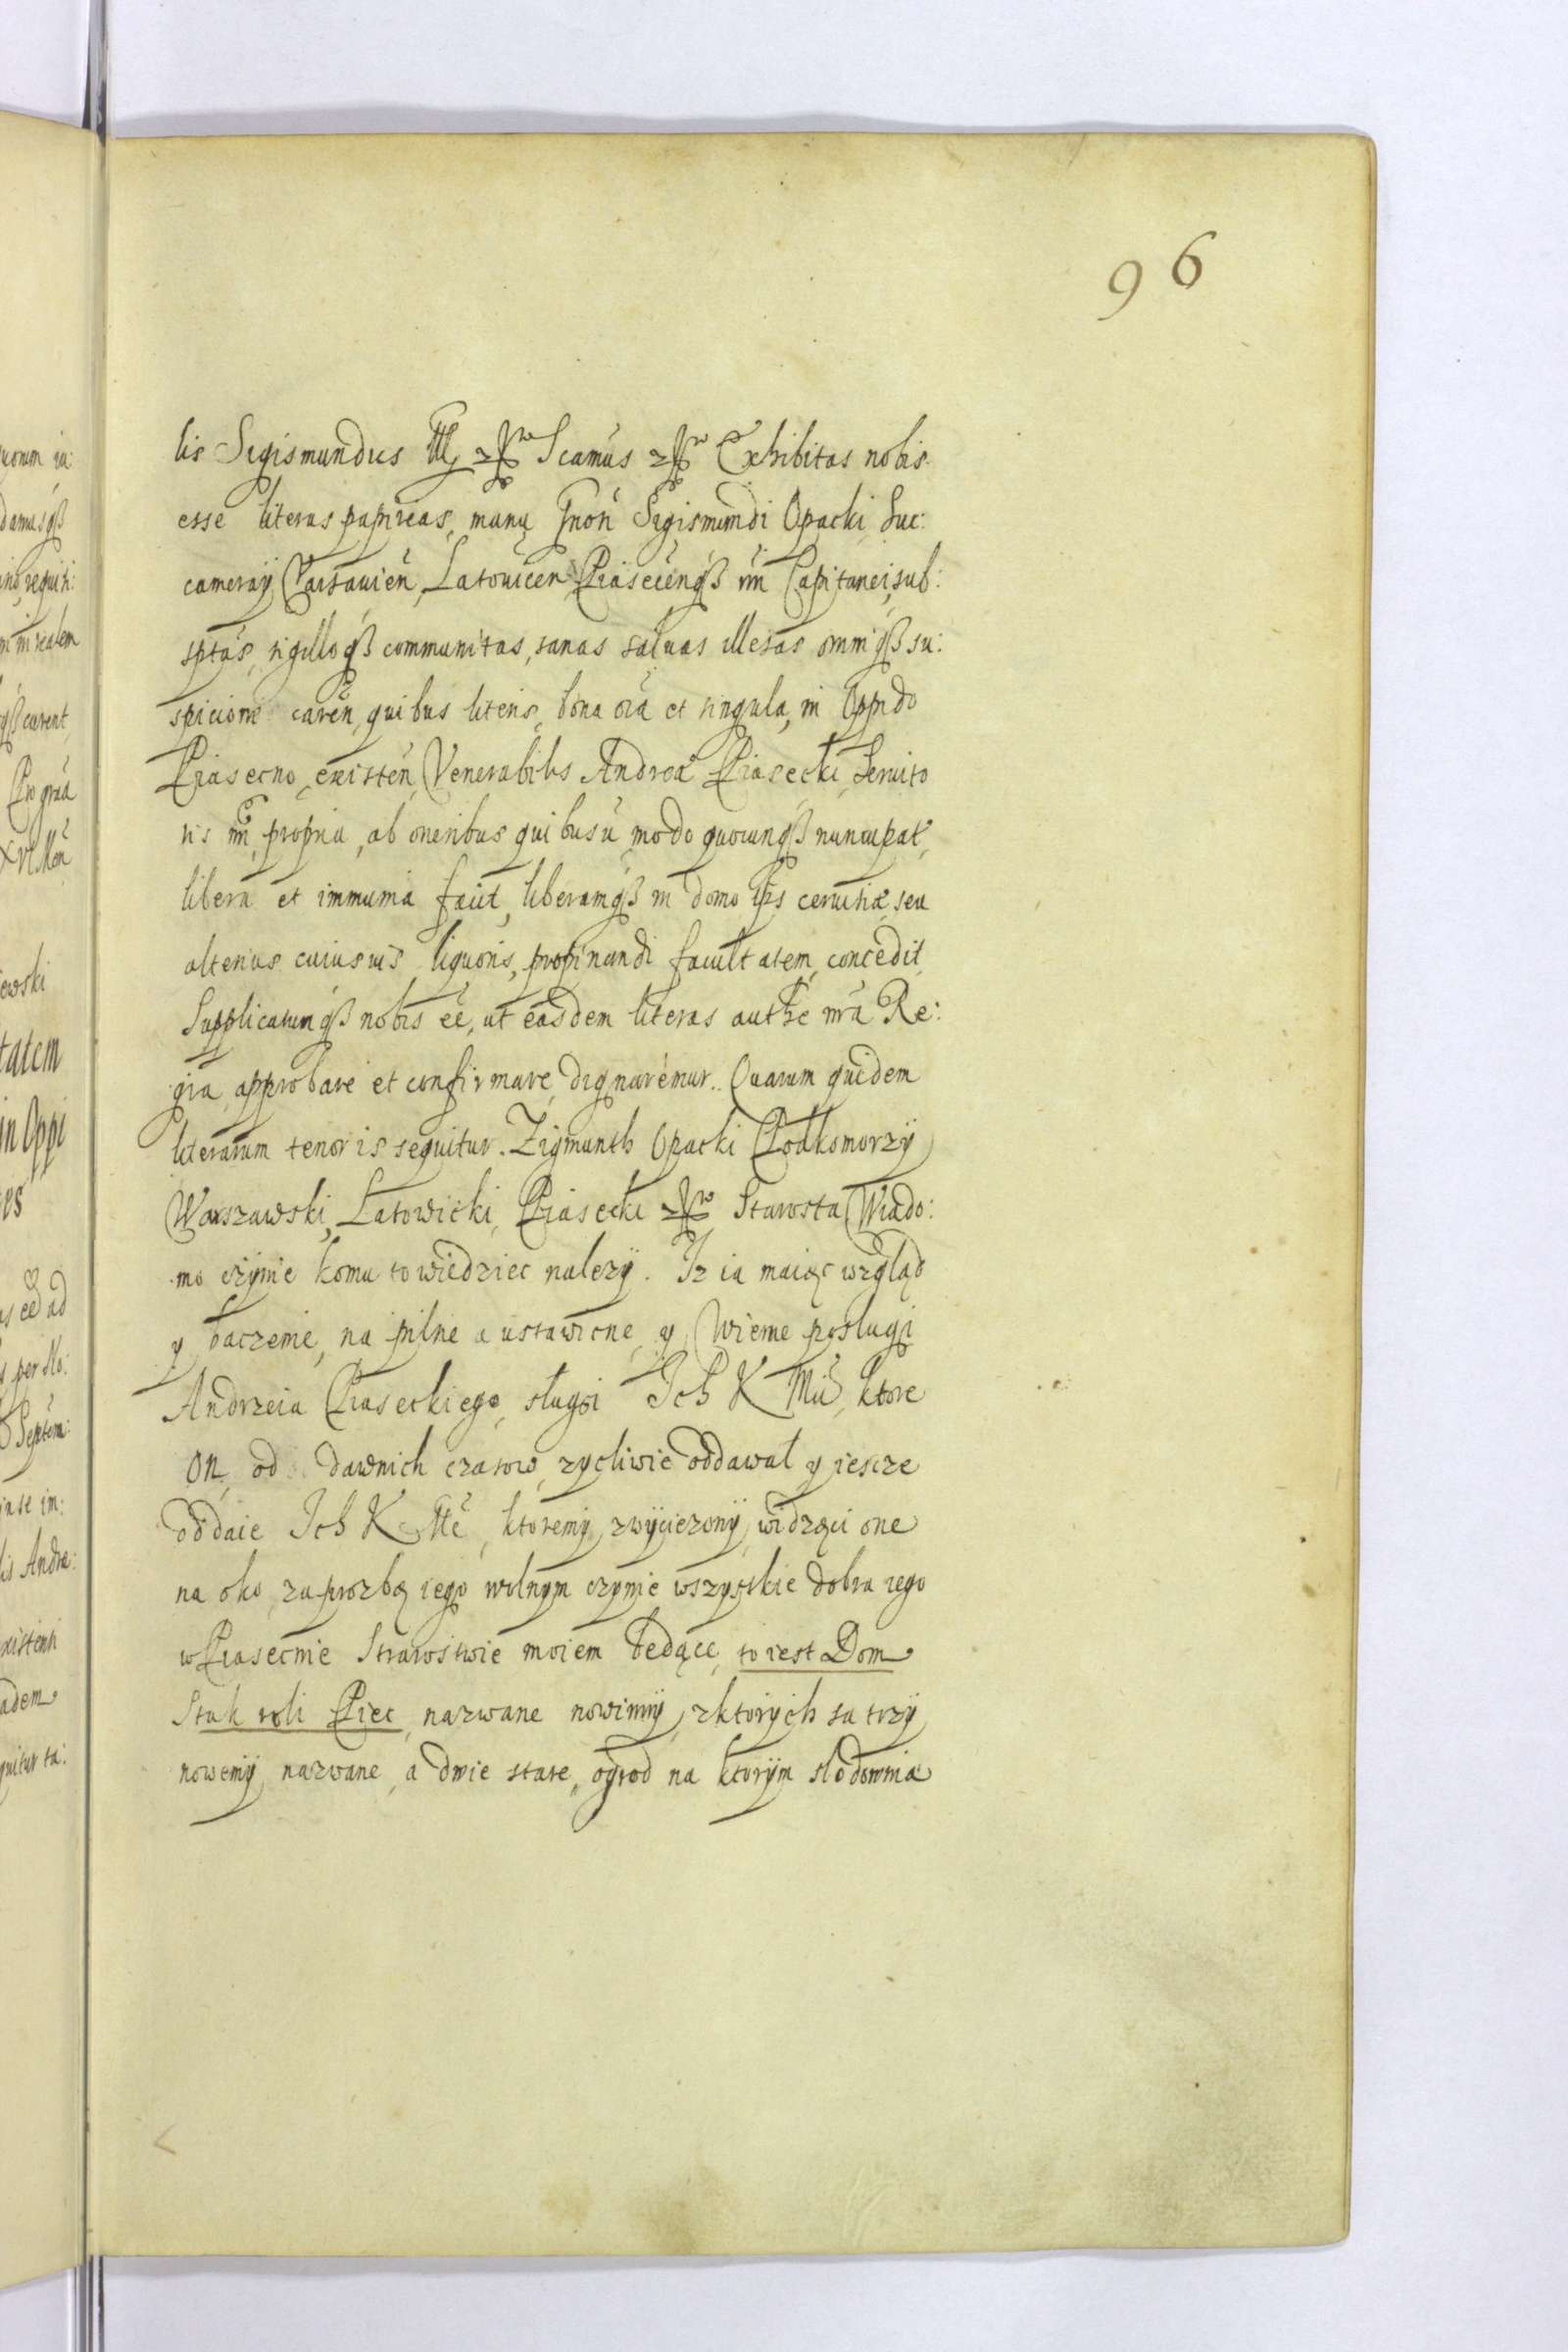 96
lis Sigismundus III etc Scamus etc Exhibitas nobis
esse literas papireas, manu Gnon Sigismundi Opacki Suc:
cameraÿ Varsauien, Latouicen Piasecenqß nri Capitanei, sub:
sptas, sigilloqß communitas, sanas saluas illesas omniqß su:
spicione caren, quibus literis, bona oia et singula, in Oppido
Piasecno existen Venerabilis Andrea Piasecki Seruito
ris nri, propria, ab oneribus quibusu modo quocunqß nuncupat,
libera et immunia facit, liberamqß in domo ips ceruisiæ, seu
alterius cuiusuis liquoris, propinandi facultatem concedit
Supplicatumqß nobis ee, ut easdem literas authe nra Re:
gia approbare et confirmare dignaremur. Quarum quidem
literarum tenor is sequitur. Zigmunth Opacki Podkomorzÿ
Warszawski, Latowicki, Piasecki etc Starosta Wiado:
mo czÿnie komu to wiedziec nalezÿ. Iz ia maiąc wzgląd
y baczenie, na pilne a ustawicne y Wierne poslugi
Andrzeia Piaseckiego, slugi Ich K Mci, ktore
on, od dawnich czasow, zycliwie oddawal y iescze
oddaie Ich K Mc, ktoremÿ zwÿciezonÿ widzący one
na oko, za prozbą iego wolnÿm czÿnie wszÿstkie dobra iego
w Piasecnie Starostwie moiem bedące, to iest Dom
Stuk roli Piec, nazwane nowinnÿ, z ktorÿch sa trzÿ
nowemÿ nazwane, a dwie stare, ogrod na ktorÿm slodownia